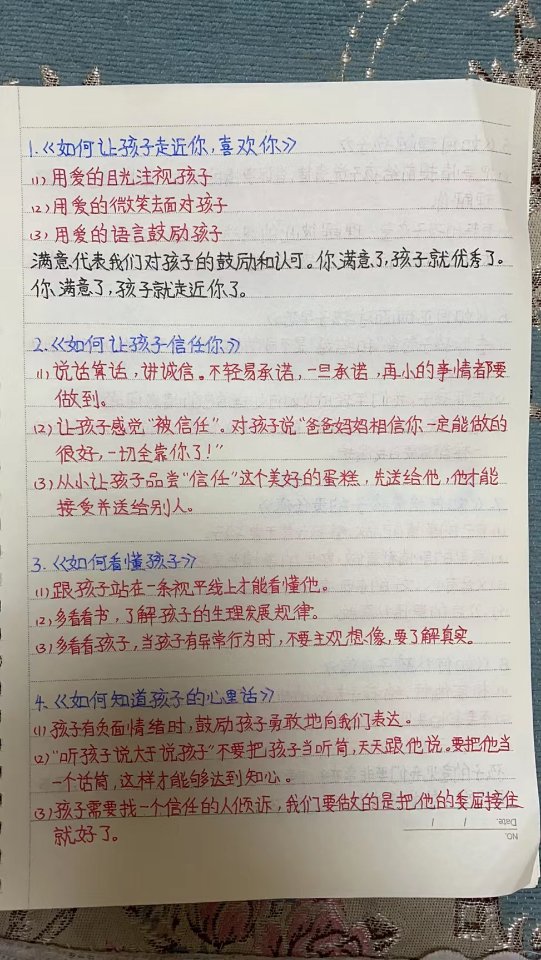 1.《如何让孩子走近你,喜欢你》
(1) 用爱的目光注视孩子
(2) 用爱的微笑去面对孩子
(3) 用爱的语言鼓励孩子
满意代表我们对孩子的鼓励和认可。你满意了,孩子就优秀了。
你满意了,孩子就走近你了。
2.《如何让孩子信任你》
(1) 说话算话,讲诚信。不轻易承诺,一旦承诺,再小的事情都要
做到。
(2) 让孩子感觉"被信任"。对孩子说"爸爸妈妈相信你一定能做的
很好,一切全靠你了!"
(3) 从小让孩子品尝"信任"这个美好的蛋糕,先送给他,他才能
接受并送给别人。
3.《如何看懂孩子》
(1) 跟孩子站在一条视平线上才能看懂他。
(2) 多看看书,了解孩子的生理发展规律。
(3) 多看看孩子,当孩子有异常行为时,不要主观想像,要了解真实。
4.《如何知道孩子的心里话》
(1) 孩子有负面情绪时,鼓励孩子勇敢地向我们表达。
(2) "听孩子说大于说孩子"不要把孩子当听筒,天天跟他说。要把他当
一个话筒,这样才能够达到知心。
(3) 孩子需要找一个信任的人倾诉,我们要做的是把他的委屈接住
就好了。
NO.
Date. / /